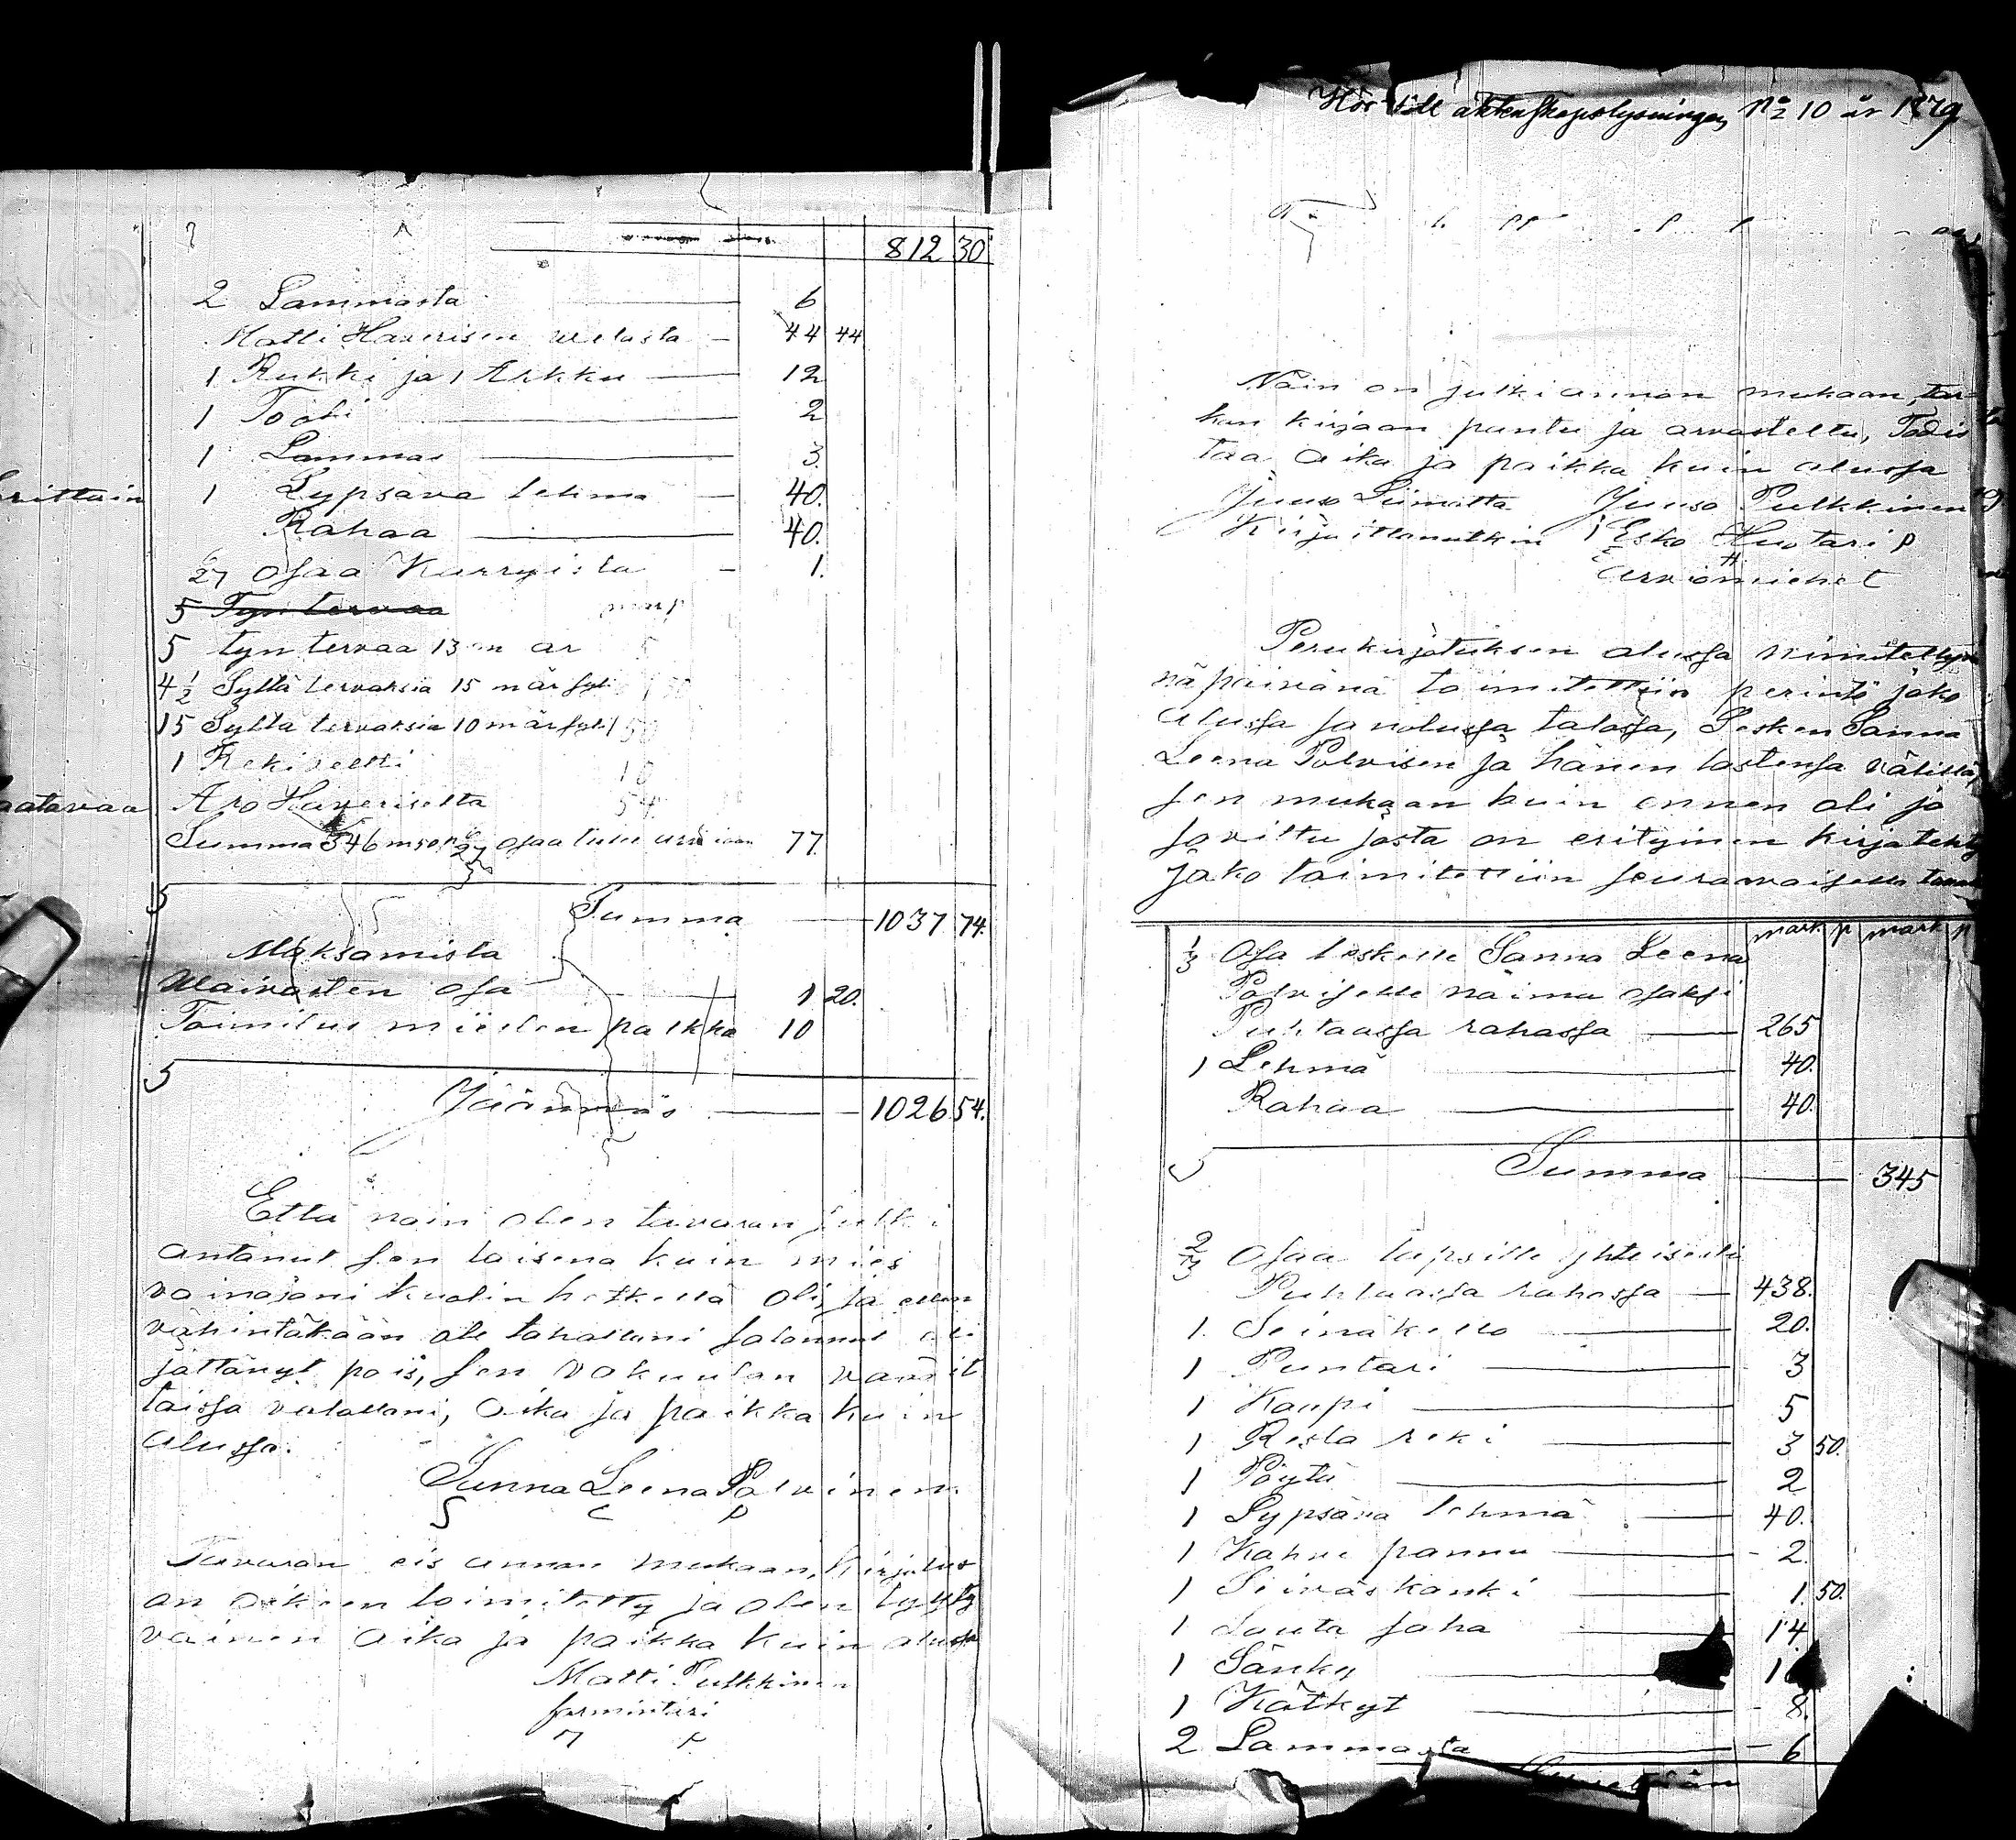 812 30
2 Lammasta 6
Matti Haverisen welasta 44 44
1 Rukki ja 1 Arkku 12
1 Tooli 2
1 Lammas 3.
erittäin
1 Lypsävä lehmä 40.
Rahaa 40.
6/27 osaa Kärryistä 1.
5 Tyn tervaa
5 tyn tervaa 13 m ar
4 1/2 Syltä tervaksia 15 mär syli
15 Syltä tervaksia 10 mär syli
1 Rekipeltti
aatavaa
A ro Haveriselta
Summa 346 m 50 p 6/27 osaa tulee 77.
Summa 1037 74.
Maksamista
Waivasten osa 1 20.
Toimitus miesten palkka 10
Jäännös 1026 54.
Että näin olen tavaran julki
antanut sen laisena kuin mies
vainajani kuolin hetkellä oli, ja etten
vähintäkään ole tahallani salannut eli
jättänyt pois, sen vakuutan
taissa valallani, aika ja paikka kuin
alussa.
Sanna Leena Polvinen
S L P
Tavaran eis annon mukaan, kirjoitus
on oikeen toimitettu ja olen tyyty
väinen aika ja paikka kuin alussa
Matti Pulkkinen
förmintäri
Hör till äktenskapslysningen No 10 år 1879
Näin on julki annon mukaan, tar
kan kirjaan pantu ja arvosteltu, Todis
taa aika ja paikka kuin alussa
Juuso Liimatta Juuso Pulkkinen
Kirjoittanutkin Esko Huotari
E H
Arviomiehet
Perukirjotuksen alussa nimitettynä
nä päivänä toimitettiin perintö jako
alussa sanotussa talossa, Lesken Sanna
Leena Polvisen ja hänen lastensa välillä,
sen mukaan kuin ennen oli jo
sovittu josta on erityinen kirja tehty
Jako toimitettiin seuraavaisella tavalla
mark p mark p
1/3 Osa leskelle Sanna Leena
Polviselle naima osaksi
Puhtaassa rahassa 265
1 Lehmä 40.
Rahaa 40.
Summa 345
2/3 osaa lapsille yhteisesti
Puhtaassa rahassa 438.
1. Seinäkello 20.
1 Puntari 3
1 Kaupi 5
1 Resla reki 3 50.
1 Pöytä 2
1 Lypsävä lehmä 40.
1 Kahvi pannu 2.
1 Seiväskanki 1. 50.
1 Louta saha 14.
1 Sänky
1 Kätkyt 8.
2 Lammasta 6
Siirretään